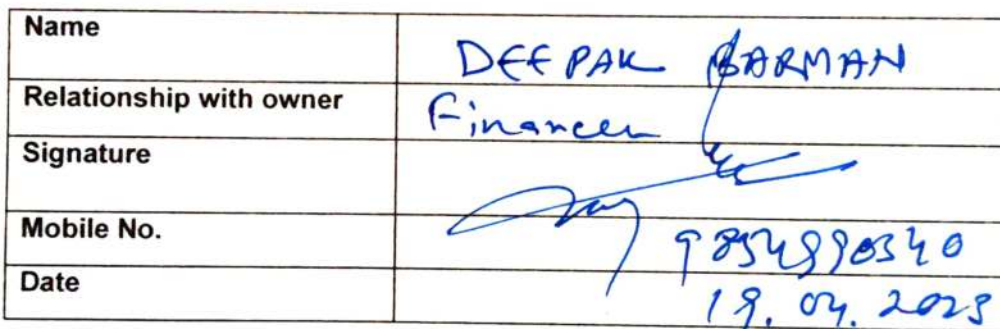 Name DEEPAK BARMAN
Relationship with owner Financer
Signature
Mobile No. 9854990340
Date 19.04.2023